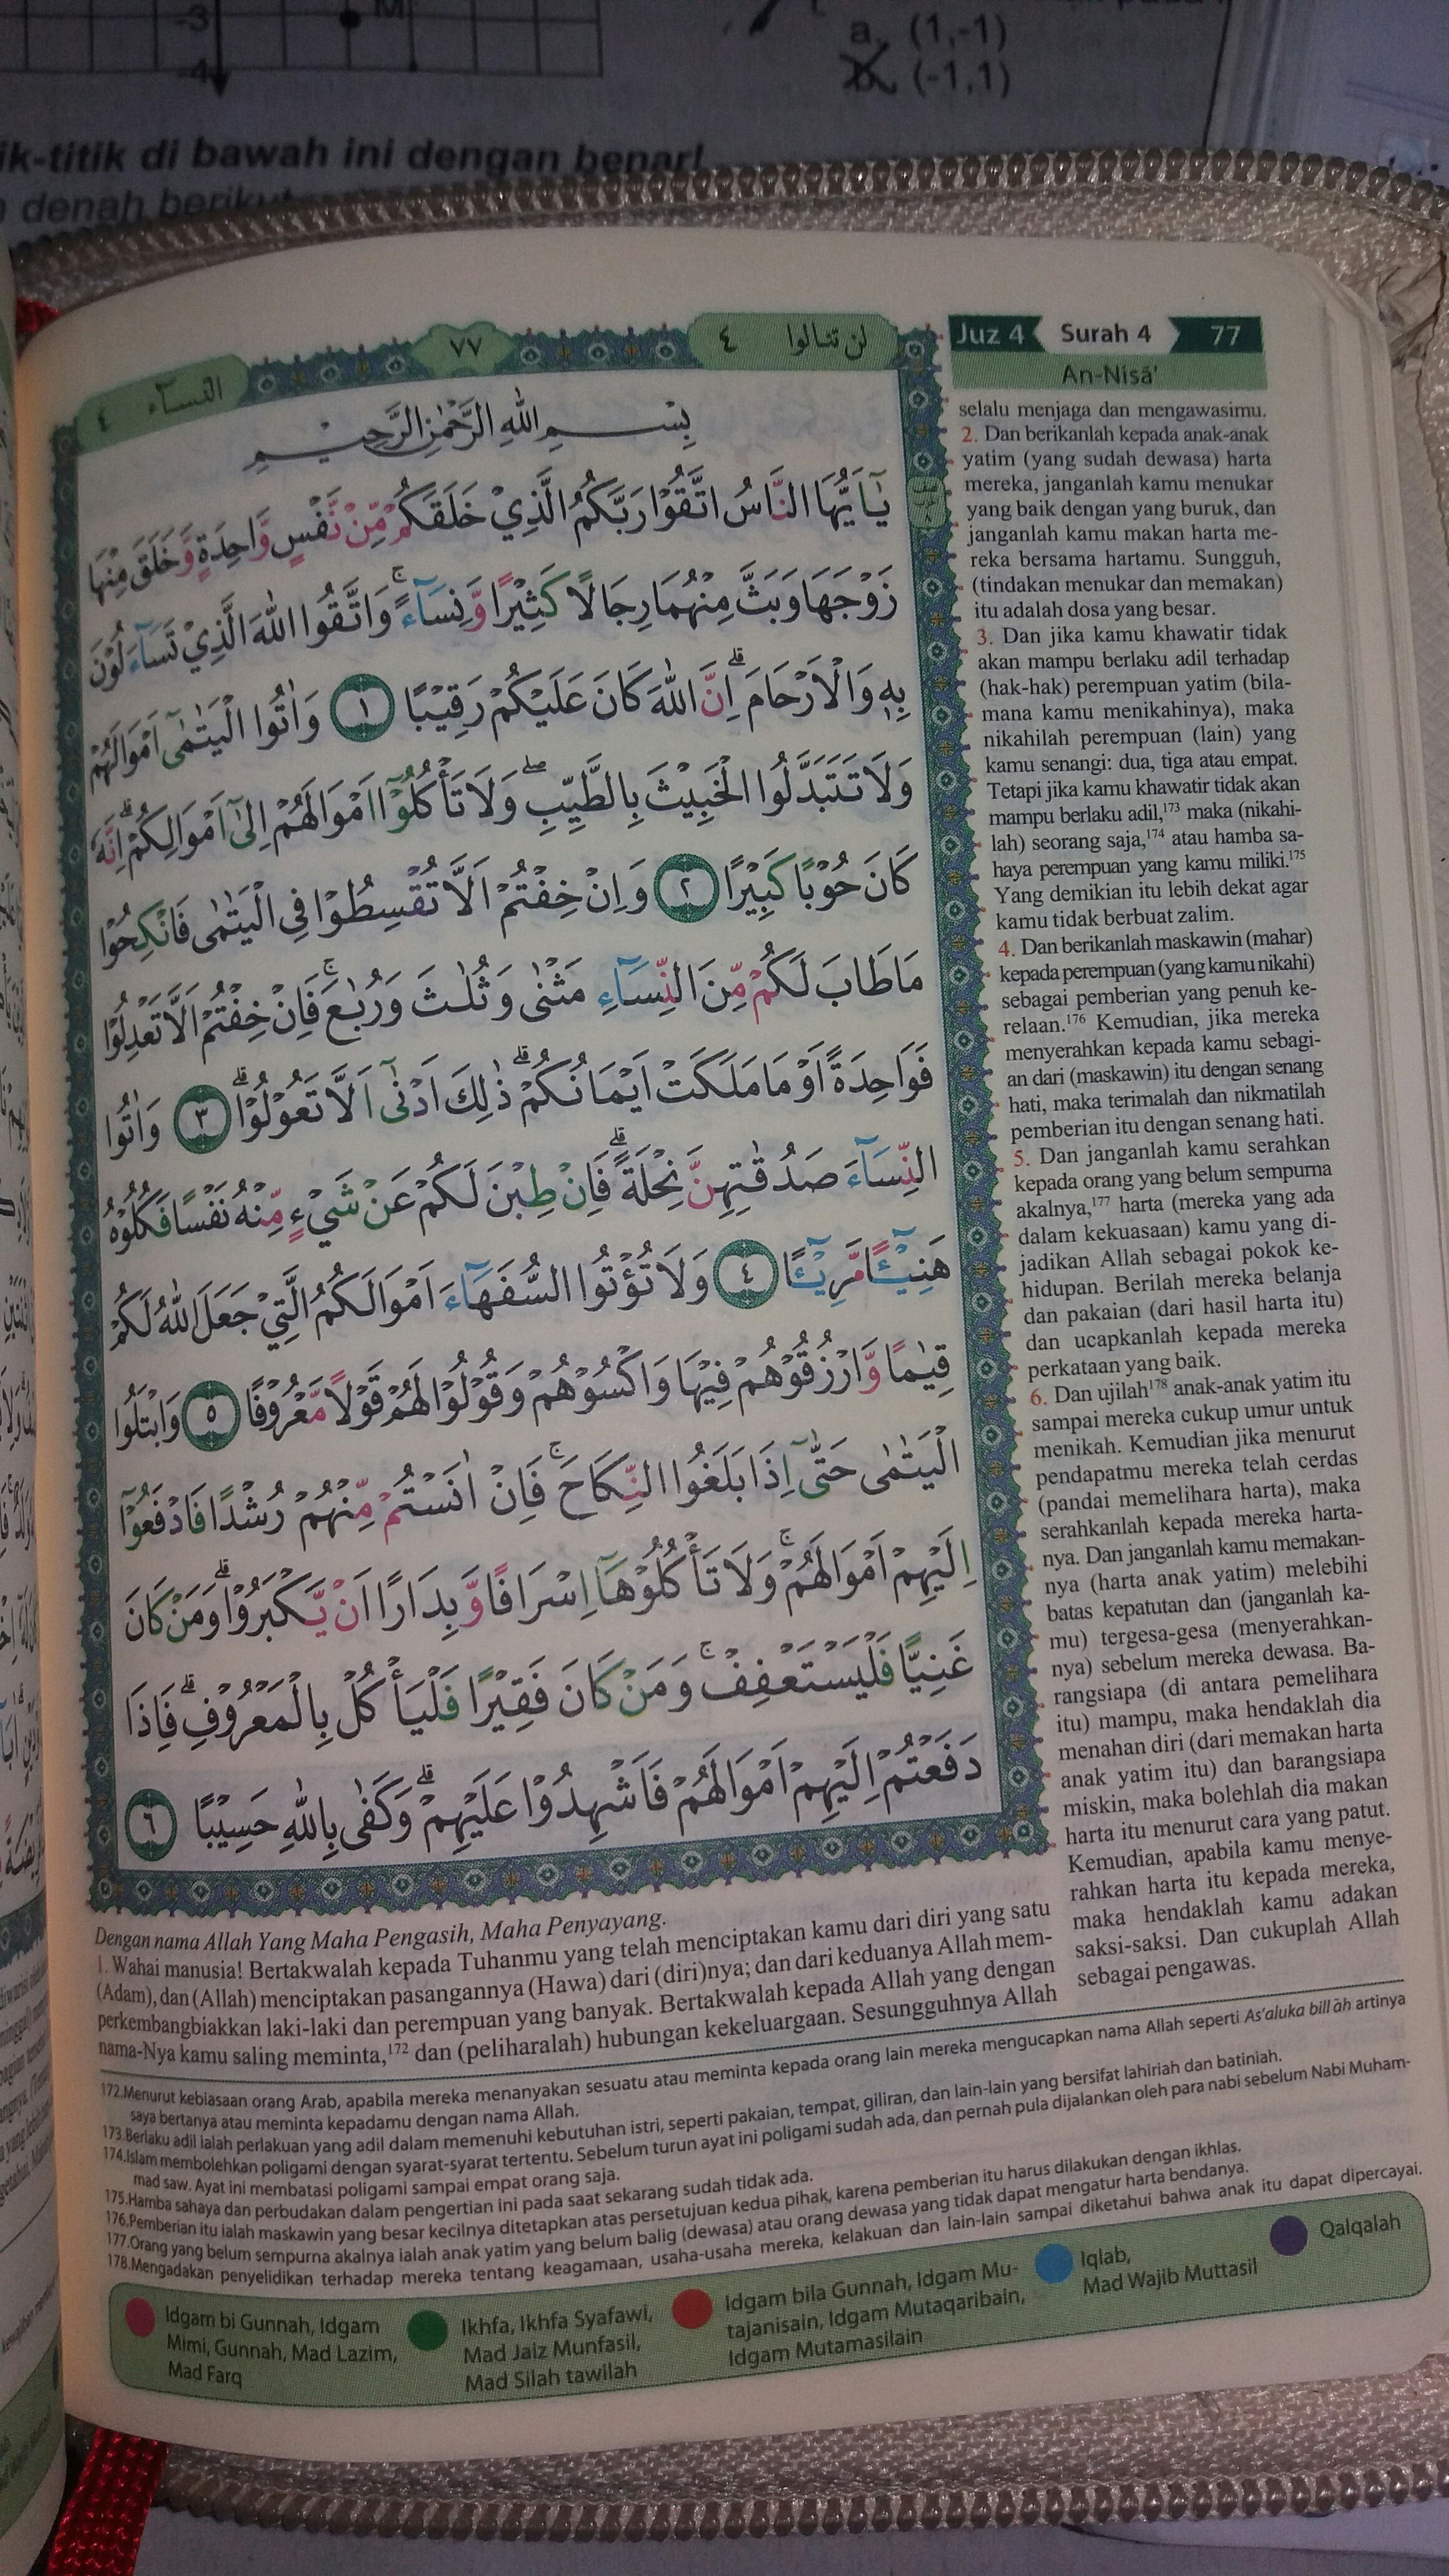 -3
M
-4
a. (1,-1)
b. (-1,1)
ik-titik di bawah ini dengan benar!
denah berikut
النسآء ٤
٧٧
لن تنالوا ٤
Juz 4 Surah 4 77
An-Nisā'
بِسْمِ اللّٰهِ الرَّحْمٰنِ الرَّحِيْمِ
يٰٓاَيُّهَا النَّاسُ اتَّقُوْا رَبَّكُمُ الَّذِيْ خَلَقَكُمْ مِّنْ نَّفْسٍ وَّاحِدَةٍ وَّخَلَقَ مِنْهَا
زَوْجَهَا وَبَثَّ مِنْهُمَا رِجَالًا كَثِيْرًا وَّنِسَاۤءً ۚ وَاتَّقُوا اللّٰهَ الَّذِيْ تَسَاۤءَلُوْنَ
بِهٖ وَالْاَرْحَامَ ۗ اِنَّ اللّٰهَ كَانَ عَلَيْكُمْ رَقِيْبًا ١ وَاٰتُوا الْيَتٰمٰىٓ اَمْوَالَهُمْ
وَلَا تَتَبَدَّلُوا الْخَبِيْثَ بِالطَّيِّبِ ۖ وَلَا تَأْكُلُوْٓا اَمْوَالَهُمْ اِلٰٓى اَمْوَالِكُمْ ۗ اِنَّهٗ
كَانَ حُوْبًا كَبِيْرًا ٢ وَاِنْ خِفْتُمْ اَلَّا تُقْسِطُوْا فِى الْيَتٰمٰى فَانْكِحُوْا
مَا طَابَ لَكُمْ مِّنَ النِّسَاۤءِ مَثْنٰى وَثُلٰثَ وَرُبٰعَ ۚ فَاِنْ خِفْتُمْ اَلَّا تَعْدِلُوْا
فَوَاحِدَةً اَوْ مَا مَلَكَتْ اَيْمَانُكُمْ ۗ ذٰلِكَ اَدْنٰىٓ اَلَّا تَعُوْلُوْا ۗ ٣ وَاٰتُوا
النِّسَاۤءَ صَدُقٰتِهِنَّ نِحْلَةً ۗ فَاِنْ طِبْنَ لَكُمْ عَنْ شَيْءٍ مِّنْهُ نَفْسًا فَكُلُوْهُ
هَنِيْۤـًٔا مَّرِيْۤـًٔا ٤ وَلَا تُؤْتُوا السُّفَهَاۤءَ اَمْوَالَكُمُ الَّتِيْ جَعَلَ اللّٰهُ لَكُمْ
قِيٰمًا وَّارْزُقُوْهُمْ فِيْهَا وَاكْسُوْهُمْ وَقُوْلُوْا لَهُمْ قَوْلًا مَّعْرُوْفًا ٥ وَابْتَلُوا
الْيَتٰمٰى حَتّٰىٓ اِذَا بَلَغُوا النِّكَاحَ ۚ فَاِنْ اٰنَسْتُمْ مِّنْهُمْ رُشْدًا فَادْفَعُوْٓا
اِلَيْهِمْ اَمْوَالَهُمْ ۚ وَلَا تَأْكُلُوْهَآ اِسْرَافًا وَّبِدَارًا اَنْ يَّكْبَرُوْا ۗ وَمَنْ كَانَ
غَنِيًّا فَلْيَسْتَعْفِفْ ۚ وَمَنْ كَانَ فَقِيْرًا فَلْيَأْكُلْ بِالْمَعْرُوْفِ ۗ فَاِذَا
دَفَعْتُمْ اِلَيْهِمْ اَمْوَالَهُمْ فَاَشْهِدُوْا عَلَيْهِمْ ۗ وَكَفٰى بِاللّٰهِ حَسِيْبًا ٦
Dengan nama Allah Yang Maha Pengasih, Maha Penyayang.
1. Wahai manusia! Bertakwalah kepada Tuhanmu yang telah menciptakan kamu dari diri yang satu
(Adam), dan (Allah) menciptakan pasangannya (Hawa) dari (diri)nya; dan dari keduanya Allah mem-
perkembangbiakkan laki-laki dan perempuan yang banyak. Bertakwalah kepada Allah yang dengan
nama-Nya kamu saling meminta,172 dan (peliharalah) hubungan kekeluargaan. Sesungguhnya Allah
selalu menjaga dan mengawasimu.
2. Dan berikanlah kepada anak-anak
yatim (yang sudah dewasa) harta
mereka, janganlah kamu menukar
yang baik dengan yang buruk, dan
janganlah kamu makan harta me-
reka bersama hartamu. Sungguh,
(tindakan menukar dan memakan)
itu adalah dosa yang besar.
3. Dan jika kamu khawatir tidak
akan mampu berlaku adil terhadap
(hak-hak) perempuan yatim (bila-
mana kamu menikahinya), maka
nikahilah perempuan (lain) yang
kamu senangi: dua, tiga atau empat.
Tetapi jika kamu khawatir tidak akan
mampu berlaku adil,173 maka (nikahi-
lah) seorang saja,174 atau hamba sa-
haya perempuan yang kamu miliki.175
Yang demikian itu lebih dekat agar
kamu tidak berbuat zalim.
4. Dan berikanlah maskawin (mahar)
kepada perempuan (yang kamu nikahi)
sebagai pemberian yang penuh ke-
relaan.176 Kemudian, jika mereka
menyerahkan kepada kamu sebagi-
an dari (maskawin) itu dengan senang
hati, maka terimalah dan nikmatilah
pemberian itu dengan senang hati.
5. Dan janganlah kamu serahkan
kepada orang yang belum sempurna
akalnya,177 harta (mereka yang ada
dalam kekuasaan) kamu yang di-
jadikan Allah sebagai pokok ke-
hidupan. Berilah mereka belanja
dan pakaian (dari hasil harta itu)
dan ucapkanlah kepada mereka
perkataan yang baik.
6. Dan ujilah178 anak-anak yatim itu
sampai mereka cukup umur untuk
menikah. Kemudian jika menurut
pendapatmu mereka telah cerdas
(pandai memelihara harta), maka
serahkanlah kepada mereka harta-
nya. Dan janganlah kamu memakan-
nya (harta anak yatim) melebihi
batas kepatutan dan (janganlah ka-
mu) tergesa-gesa (menyerahkan-
nya) sebelum mereka dewasa. Ba-
rangsiapa (di antara pemelihara
itu) mampu, maka hendaklah dia
menahan diri (dari memakan harta
anak yatim itu) dan barangsiapa
miskin, maka bolehlah dia makan
harta itu menurut cara yang patut.
Kemudian, apabila kamu menye-
rahkan harta itu kepada mereka,
maka hendaklah kamu adakan
saksi-saksi. Dan cukuplah Allah
sebagai pengawas.
172.Menurut kebiasaan orang Arab, apabila mereka menanyakan sesuatu atau meminta kepada orang lain mereka mengucapkan nama Allah seperti As'aluka bill āh artinya
saya bertanya atau meminta kepadamu dengan nama Allah.
173.Berlaku adil ialah perlakuan yang adil dalam memenuhi kebutuhan istri, seperti pakaian, tempat, giliran, dan lain-lain yang bersifat lahiriah dan batiniah.
174.Islam membolehkan poligami dengan syarat-syarat tertentu. Sebelum turun ayat ini poligami sudah ada, dan pernah pula dijalankan oleh para nabi sebelum Nabi Muham-
mad saw. Ayat ini membatasi poligami sampai empat orang saja.
175.Hamba sahaya dan perbudakan dalam pengertian ini pada saat sekarang sudah tidak ada.
176.Pemberian itu ialah maskawin yang besar kecilnya ditetapkan atas persetujuan kedua pihak, karena pemberian itu harus dilakukan dengan ikhlas.
177.Orang yang belum sempurna akalnya ialah anak yatim yang belum balig (dewasa) atau orang dewasa yang tidak dapat mengatur harta bendanya.
178.Mengadakan penyelidikan terhadap mereka tentang keagamaan, usaha-usaha mereka, kelakuan dan lain-lain sampai diketahui bahwa anak itu dapat dipercayai.
Idgam bi Gunnah, Idgam
Mimi, Gunnah, Mad Lazim,
Mad Farq
Ikhfa, Ikhfa Syafawi,
Mad Jaiz Munfasil,
Mad Silah tawilah
Idgam bila Gunnah, Idgam Mu-
tajanisain, Idgam Mutaqaribain,
Idgam Mutamasilain
Iqlab,
Mad Wajib Muttasil
Qalqalah